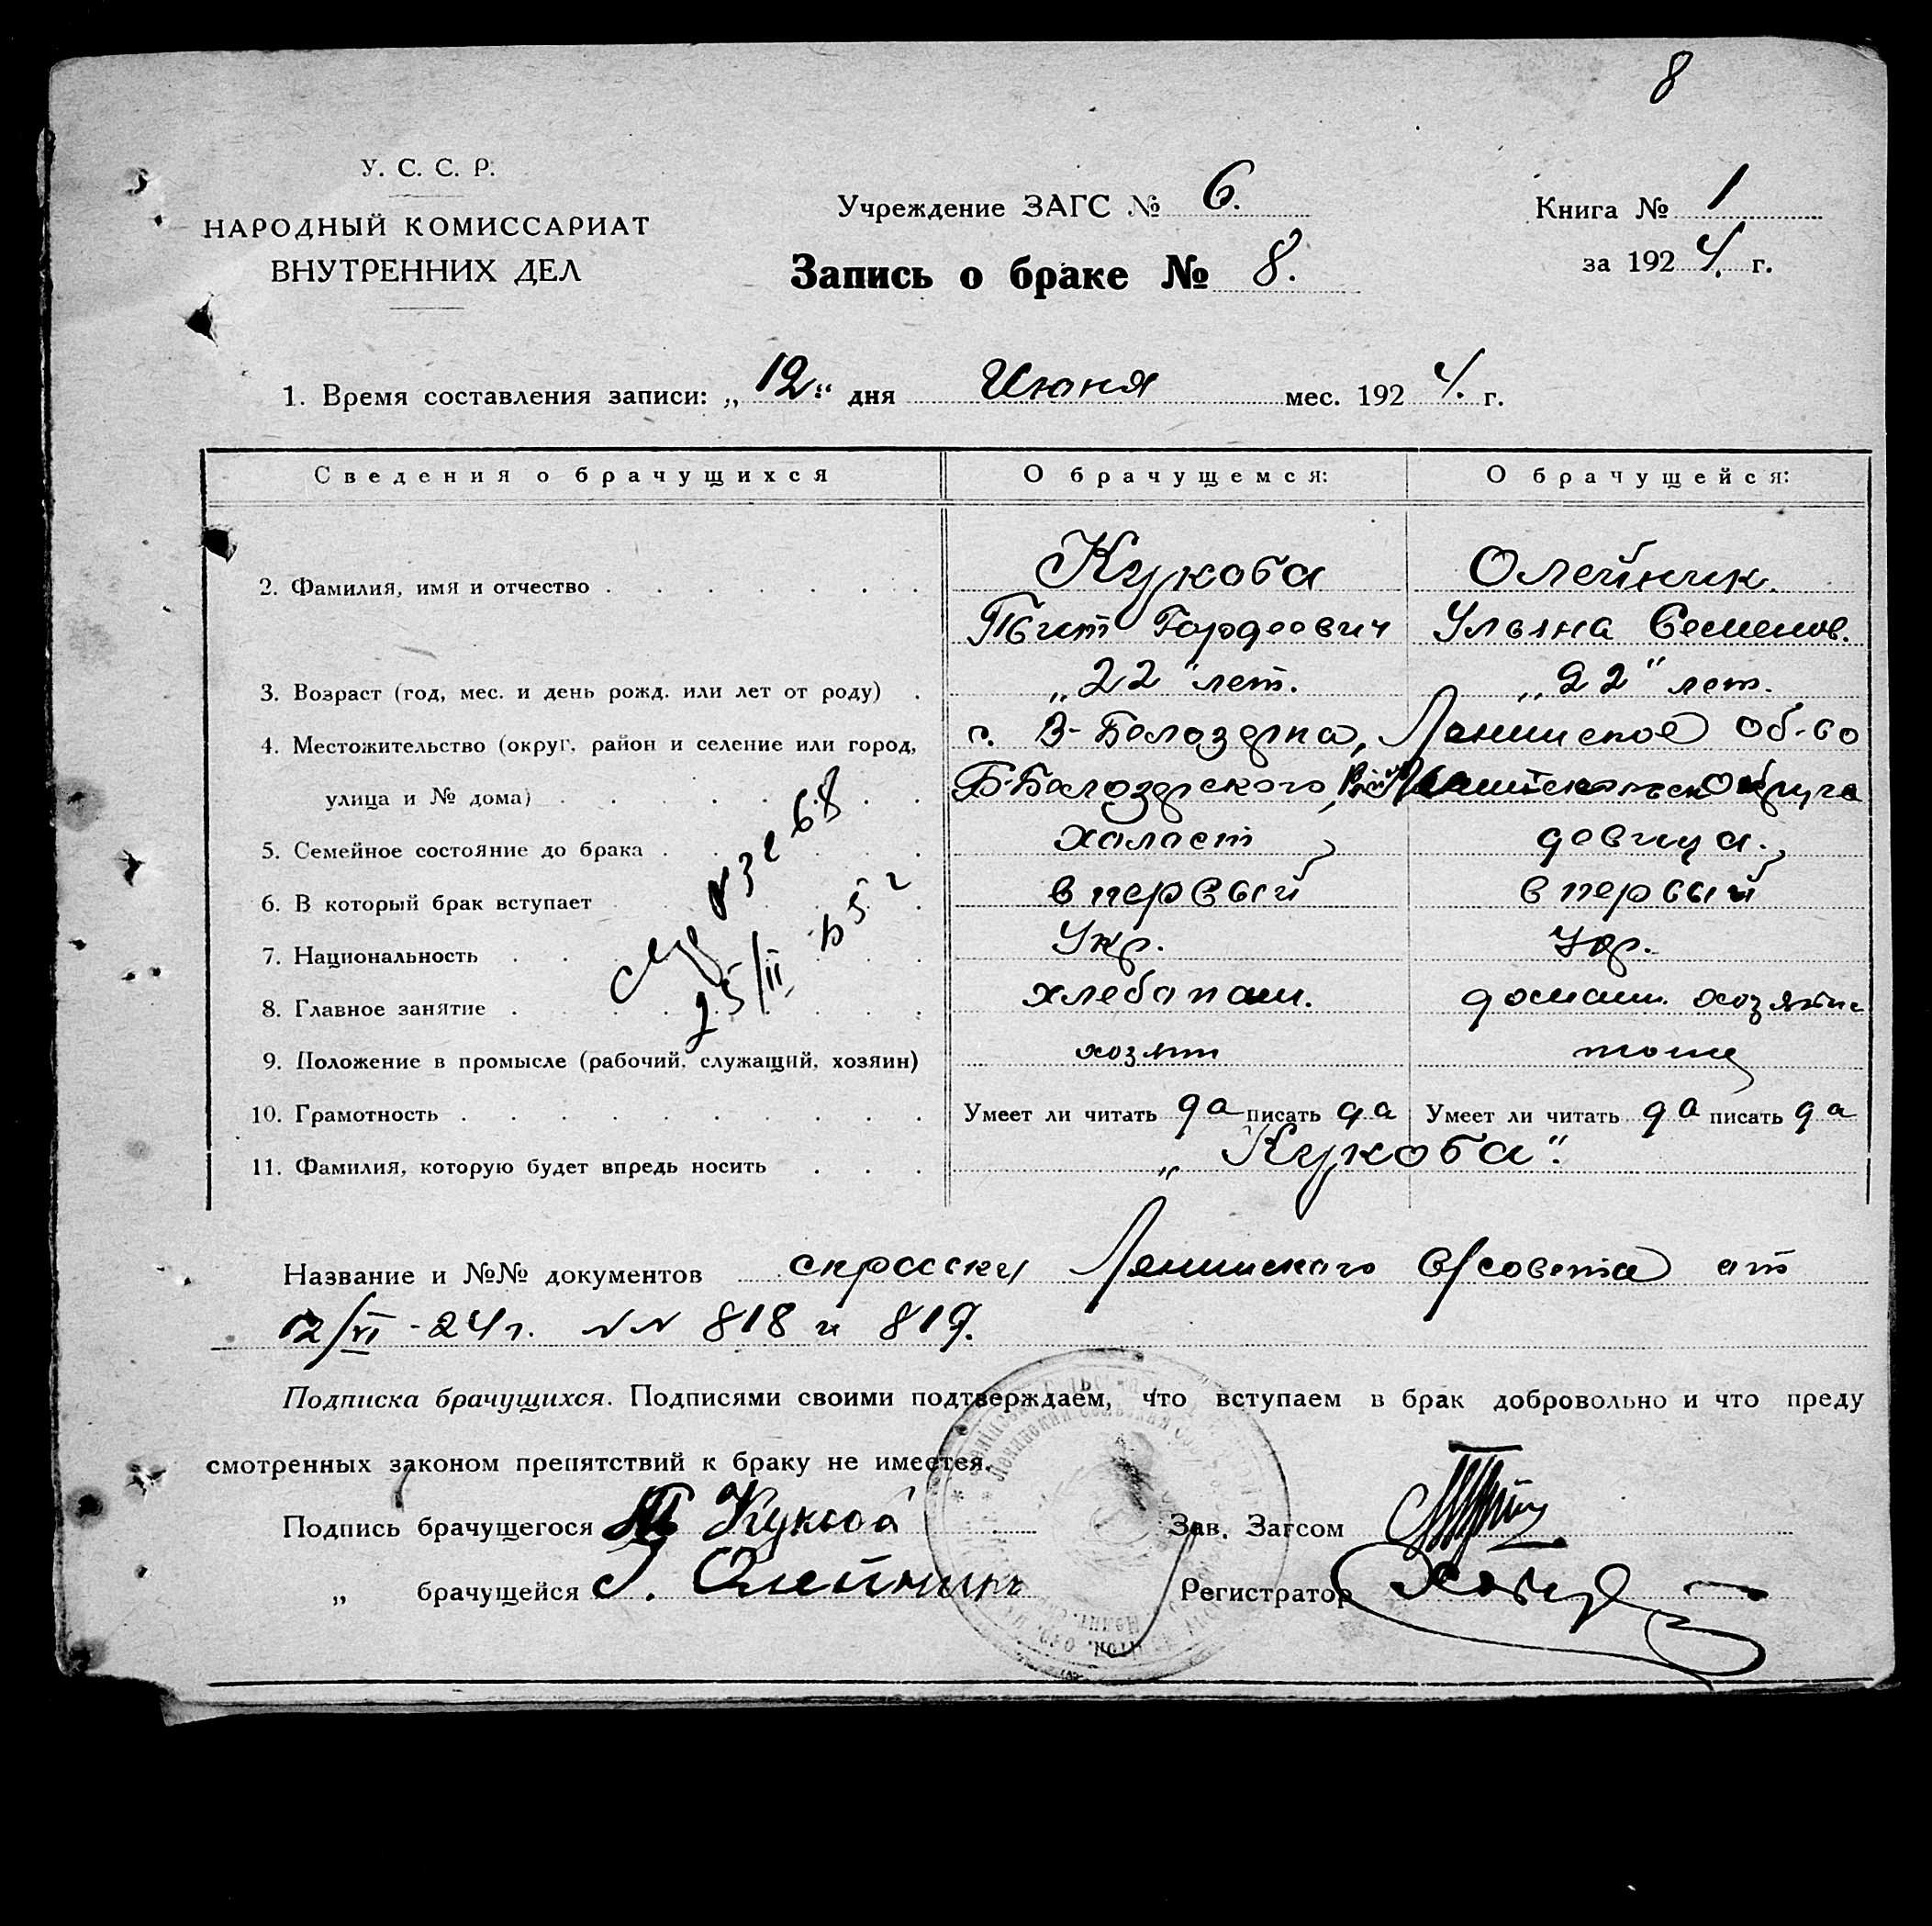 8
У. С. С. Р.
НАРОДНЫЙ КОМИССАРИАТ
ВНУТРЕННИХ ДЕЛ
Учреждение ЗАГС № 6.
Запись о браке № 8.
Книга № 1
за 1924. г.
1. Время составления записи: „12“ дня Июня мес. 1924. г.
Сведения о брачущихся О брачущемся: О брачущейся:
2. Фамилия, имя и отчество Кукоба Олейник.
Гордеевич Ульяна Семенов.
3. Возраст (год, мес. и день рожд. или лет от роду) „22“ лет. „22“ лет.
4. Местожительство (округ, район и селение или город, с. В-Белозерка, Ленинское об-во
улица и № дома) Б-Белозерского округа
5. Семейное состояние до брака холост девица.
6. В который брак вступает в первый в первый
7. Национальность Укр. Укр.
8. Главное занятие хлебопаш. домашн. хозяйка
9. Положение в промысле (рабочий, служащий, хозяин) хозяин
10. Грамотность Умеет ли читать да писать да Умеет ли читать да писать да
11. Фамилия, которую будет впредь носить „Кукоба“.
25/II
Название и №№ документов Ленинского с/совета от
12/VI - 24 г. NN 818 и 819.
Подписка брачущихся. Подписями своими подтверждаем, что вступаем в брак добровольно и что преду
смотренных законом препятствий к браку не имеется.
Подпись брачущегося Кукоба Зав. Загсом
„ брачущейся Олейник Регистратор